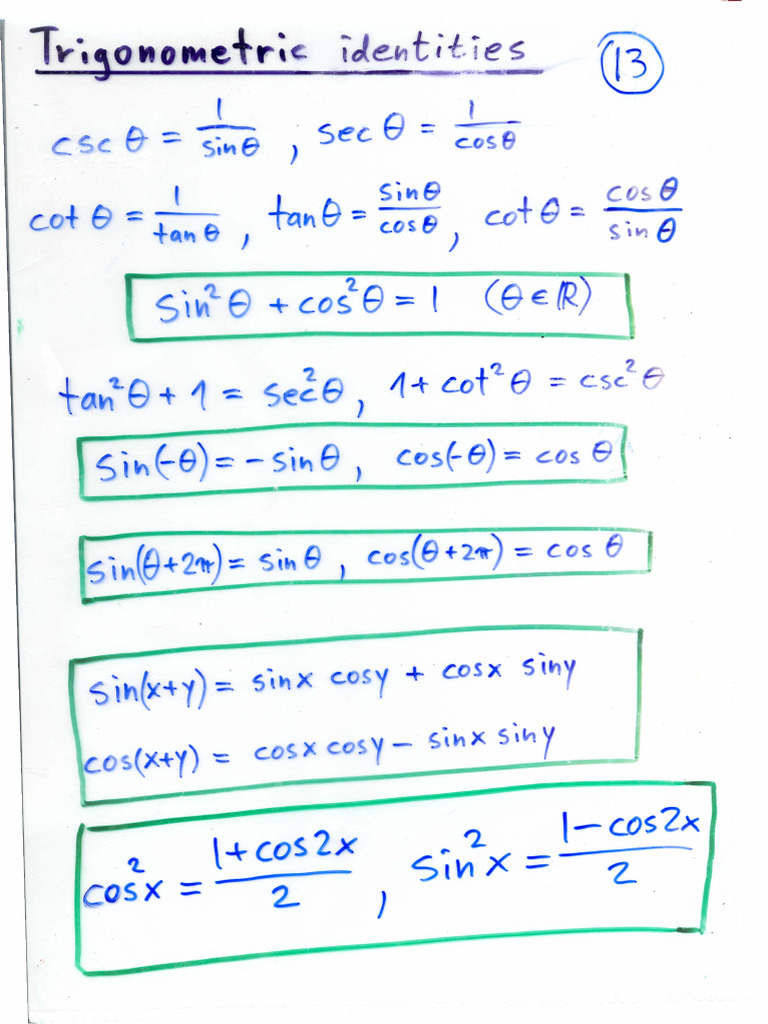 Trigonometric identities 13
csc θ = 1/sin θ , sec θ = 1/cos θ
cot θ = 1/tan θ , tan θ = sin θ/cos θ , cot θ = cos θ/sin θ
sin² θ + cos² θ = 1 (θ ∈ ℝ)
tan² θ + 1 = sec² θ , 1 + cot² θ = csc² θ
sin(-θ) = - sin θ , cos(-θ) = cos θ
sin(θ+2π) = sin θ , cos(θ+2π) = cos θ
sin(x+y) = sin x cos y + cos x sin y
cos(x+y) = cos x cos y - sin x sin y
cos² x = (1 + cos 2x)/2 , sin² x = (1 - cos 2x)/2